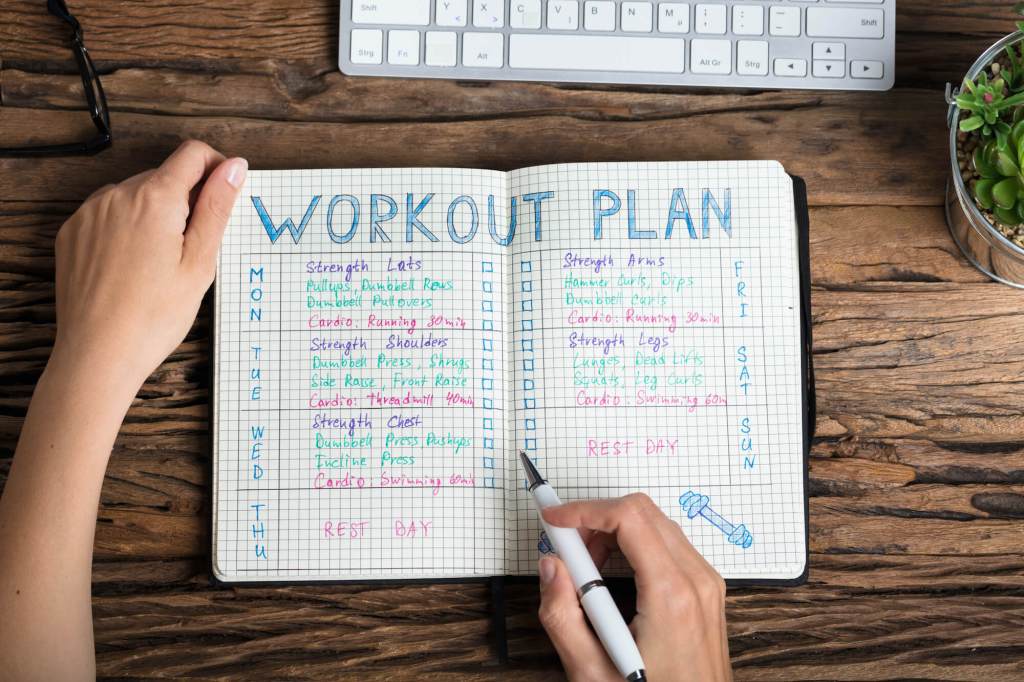 Shift Y X C V B N M ; : _ Shift
Strg Fn Alt Alt Gr Strg
WORKOUT PLAN
MON
Strength Lats
Pullups, Dumbbell Rows
Dumbbell Pullovers
Cardio: Running 30min
TUE
Strength Shoulders
Dumbbell Press, Shrugs
Side Raise, Front Raise
Cardio: Threadmill 40min
WED
Strength Chest
Dumbbell Press Pushups
Incline Press
Cardio: Swimming 60min
THU
REST DAY
FRI
Strength Arms
Hammer Curls, Dips
Dumbbell Curls
Cardio: Running 30min
SAT
Strength Legs
Lunges, Dead Lifts
Squats, Leg Curls
Cardio: Swimming 60m
SUN
REST DAY